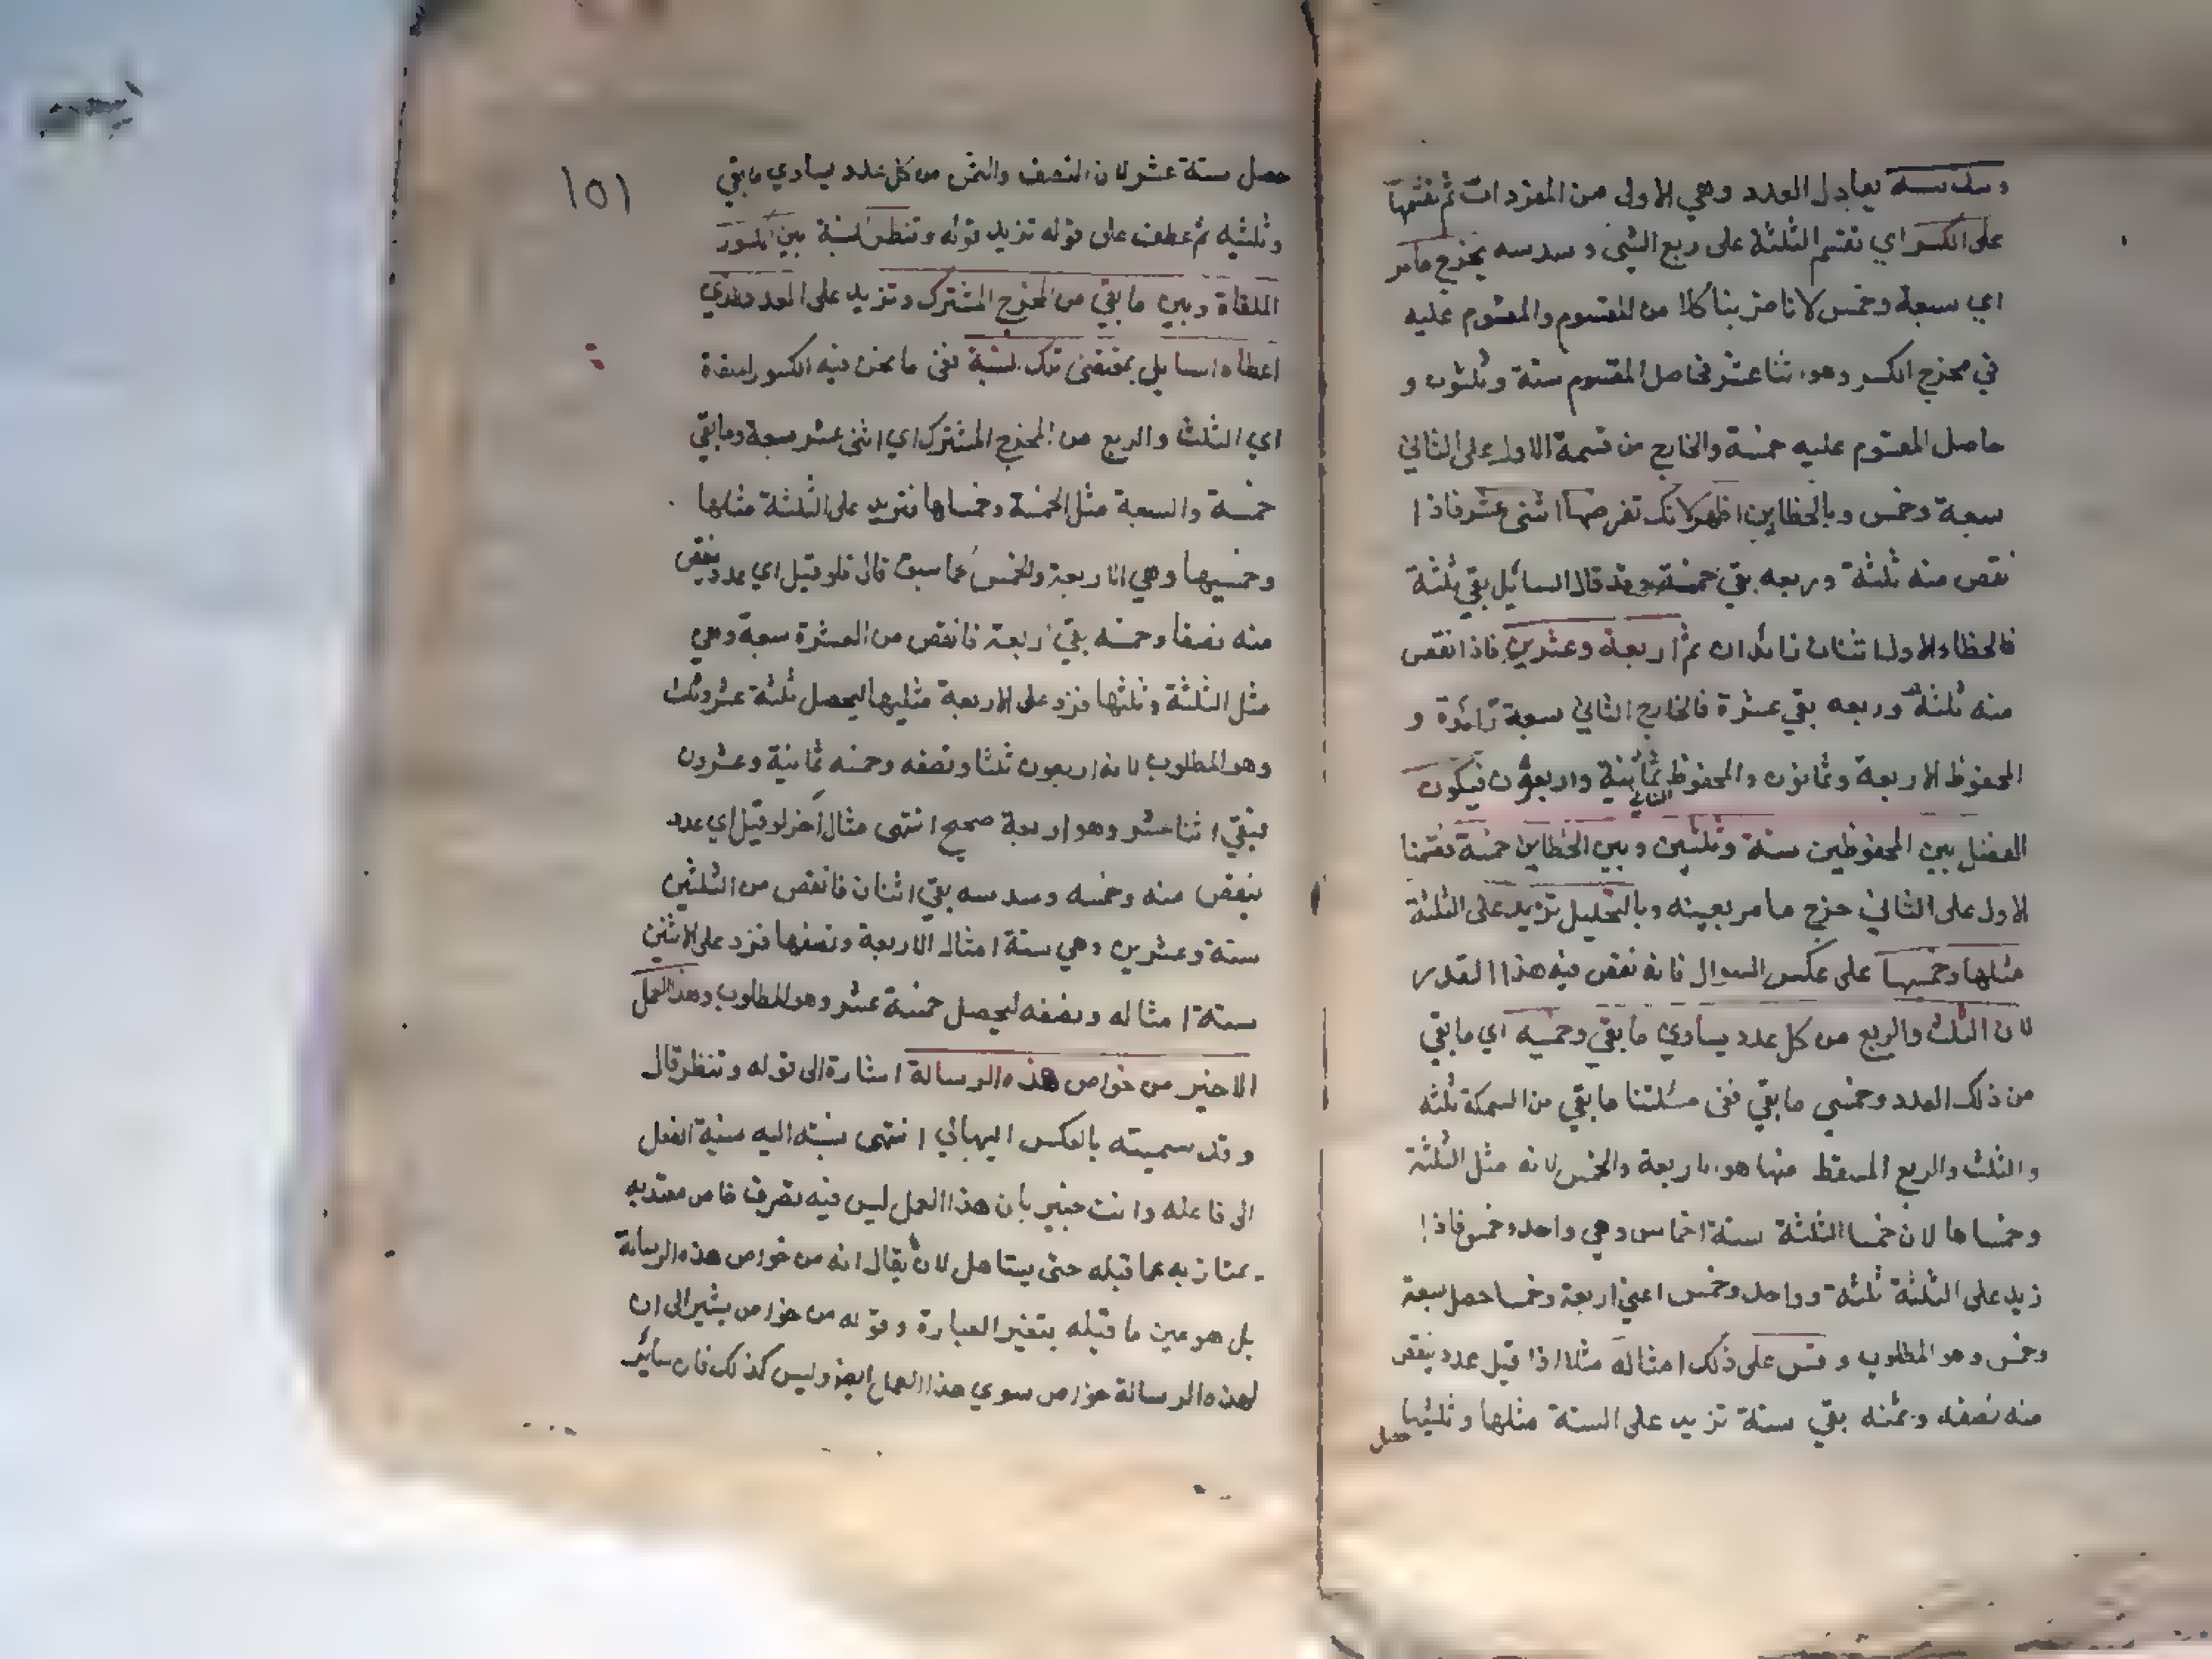 وسدسه يعادل العدد وهي الاولى من المفردات ثم نقسمها
على الكسر اي نقسم الثلثة على ربع الشئ وسدسه يخرج مامر
اي سبعة وخمس لانا ضربنا كلا من المقسوم والمقسوم عليه
في مخرج الكسر وهو اثنا عشر فحاصل المقسوم ستة وثلثون و
حاصل المقسوم عليه خمسة والخارج من قسمة الاول على الثاني
سبعة وخمس وبالخطاين اظهر لانك تفرضها اثنى عشر فاذا
نقص منه ثلثة وربعه بقي خمسة وقد قال السائل بقي ثلثة
فالخطاء الاول اثنان زائدان ثم اربعة وعشرين فاذا نقص
منه ثلثه وربعه بقي عشرة فالخارج الثاني سبعة زائدة و
المحفوظ الاربعة وثمانون والمحفوظ الثاني ثمانية واربعون فيكون
الفضل بين المحفوظين ستة وثلثين وبين الخطاين خمسة قسمنا
الاول على الثاني خرج مامر بعينه وبالتحليل تزيد على الثلثة
مثلها وخمسها على عكس السوال فانه نقص فيه هذا القدر
لان الثلث والربع من كل عدد يساوي مابقي وخمسيه اي مابقي
من ذلك العدد وخمسي مابقي ففي مسئلتنا مابقي من السمكة ثلثه
والثلث والربع المسقط منها هو اربعة والخمس لانه مثل الثلثة
وخمساها لان خمسا الثلثة ستة اخماس وهي واحد وخمس فاذا
زيد على الثلثة ثلثة وواحد وخمس اعني اربعة وخمسا حصل سبعة
وخمس وهو المطلوب وقس على ذلك امثاله مثلا اذا قيل عدد ينقص
منه نصفه وثمنه بقي ستة تزيد على الستة مثلها وثلثيها
حصل
١٥١
حصل ستة عشر لان النصف والثمن من كل عدد يساوي مابقي
وثلثيه ثم عطف على قوله تزيد قوله وتنظر النسبة بين الكسور
الملقاة وبين مابقي من المخرج المشترك وتزيد على العدد الذي
اعطاه السايل بمقتضى تلك النسبة ففي ما نحن فيه الكسور الملقاة
اي الثلث والربع من المخرج المشترك اي اثنى عشر سبعة ومابقي
خمسة والسبعة مثل الخمسة وخمساها فتزيد على الثلثة مثلها
وخمسيها وهي الاربعة والخمس كما سبق قال فلو قيل اي عدد ينقص
منه نصفا وخمسه بقي اربعة فانقص من العشرة سبعة وهي
مثل الثلثة وثلثها فزد على الاربعة مثليها ليحصل ثلثة عشر وثلث
وهو المطلوب لانه اربعون ثلثا ونصفه وخمسه ثمانية وعشرون
فبقي اثنا عشر وهو اربعة صحيح انتهى مثال اخر لو قيل اي عدد
ينقص منه وخمسه وسدسه بقي اثنان فانقص من الثلثين
ستة وعشرين وهي ستة امثال الاربعة ونصفها فزد على الاثنين
ستة امثاله ونصفه ليحصل خمسة عشر وهو المطلوب وهذا العمل
الاخير من خواص هذه الرسالة اشارة الى قوله وتنظر قال
وقد سميته بالعكس البهائي انتهى نسبته اليه نسبة الفعل
الى فاعله وانت خبير بان هذا العمل ليس فيه تصرف خاص معتد به
يمتاز به عما قبله حتى يستاهل لان يقال انه من خواص هذه الرسالة
بل هو عين ما قبله بتغير العبارة وقوله من خواص يشير الى ان
لهذه الرسالة خواص سوي هذا العمل ايضا وليس كذلك فان ساير